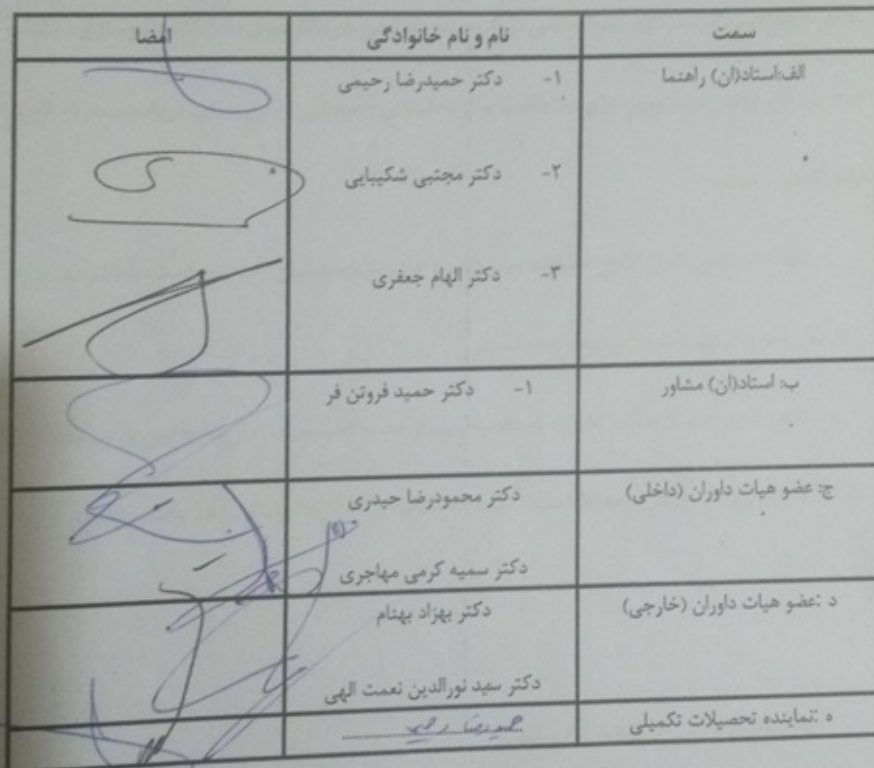 سمت نام و نام خانوادگی امضا
الف:استاد(ان) راهنما ۱- دکتر حمیدرضا رحیمی
۲- دکتر مجتبی شکیبایی
۳- دکتر الهام جعفری
ب: استاد(ان) مشاور ۱- دکتر حمید فروتن فر
ج: عضو هیات داوران (داخلی) دکتر محمودرضا حیدری
دکتر سمیه کرمی مهاجری
د :عضو هیات داوران (خارجی) دکتر بهزاد بهنام
دکتر سید نورالدین نعمت الهی
ه :نماینده تحصیلات تکمیلی حمیدرضا رحیمی